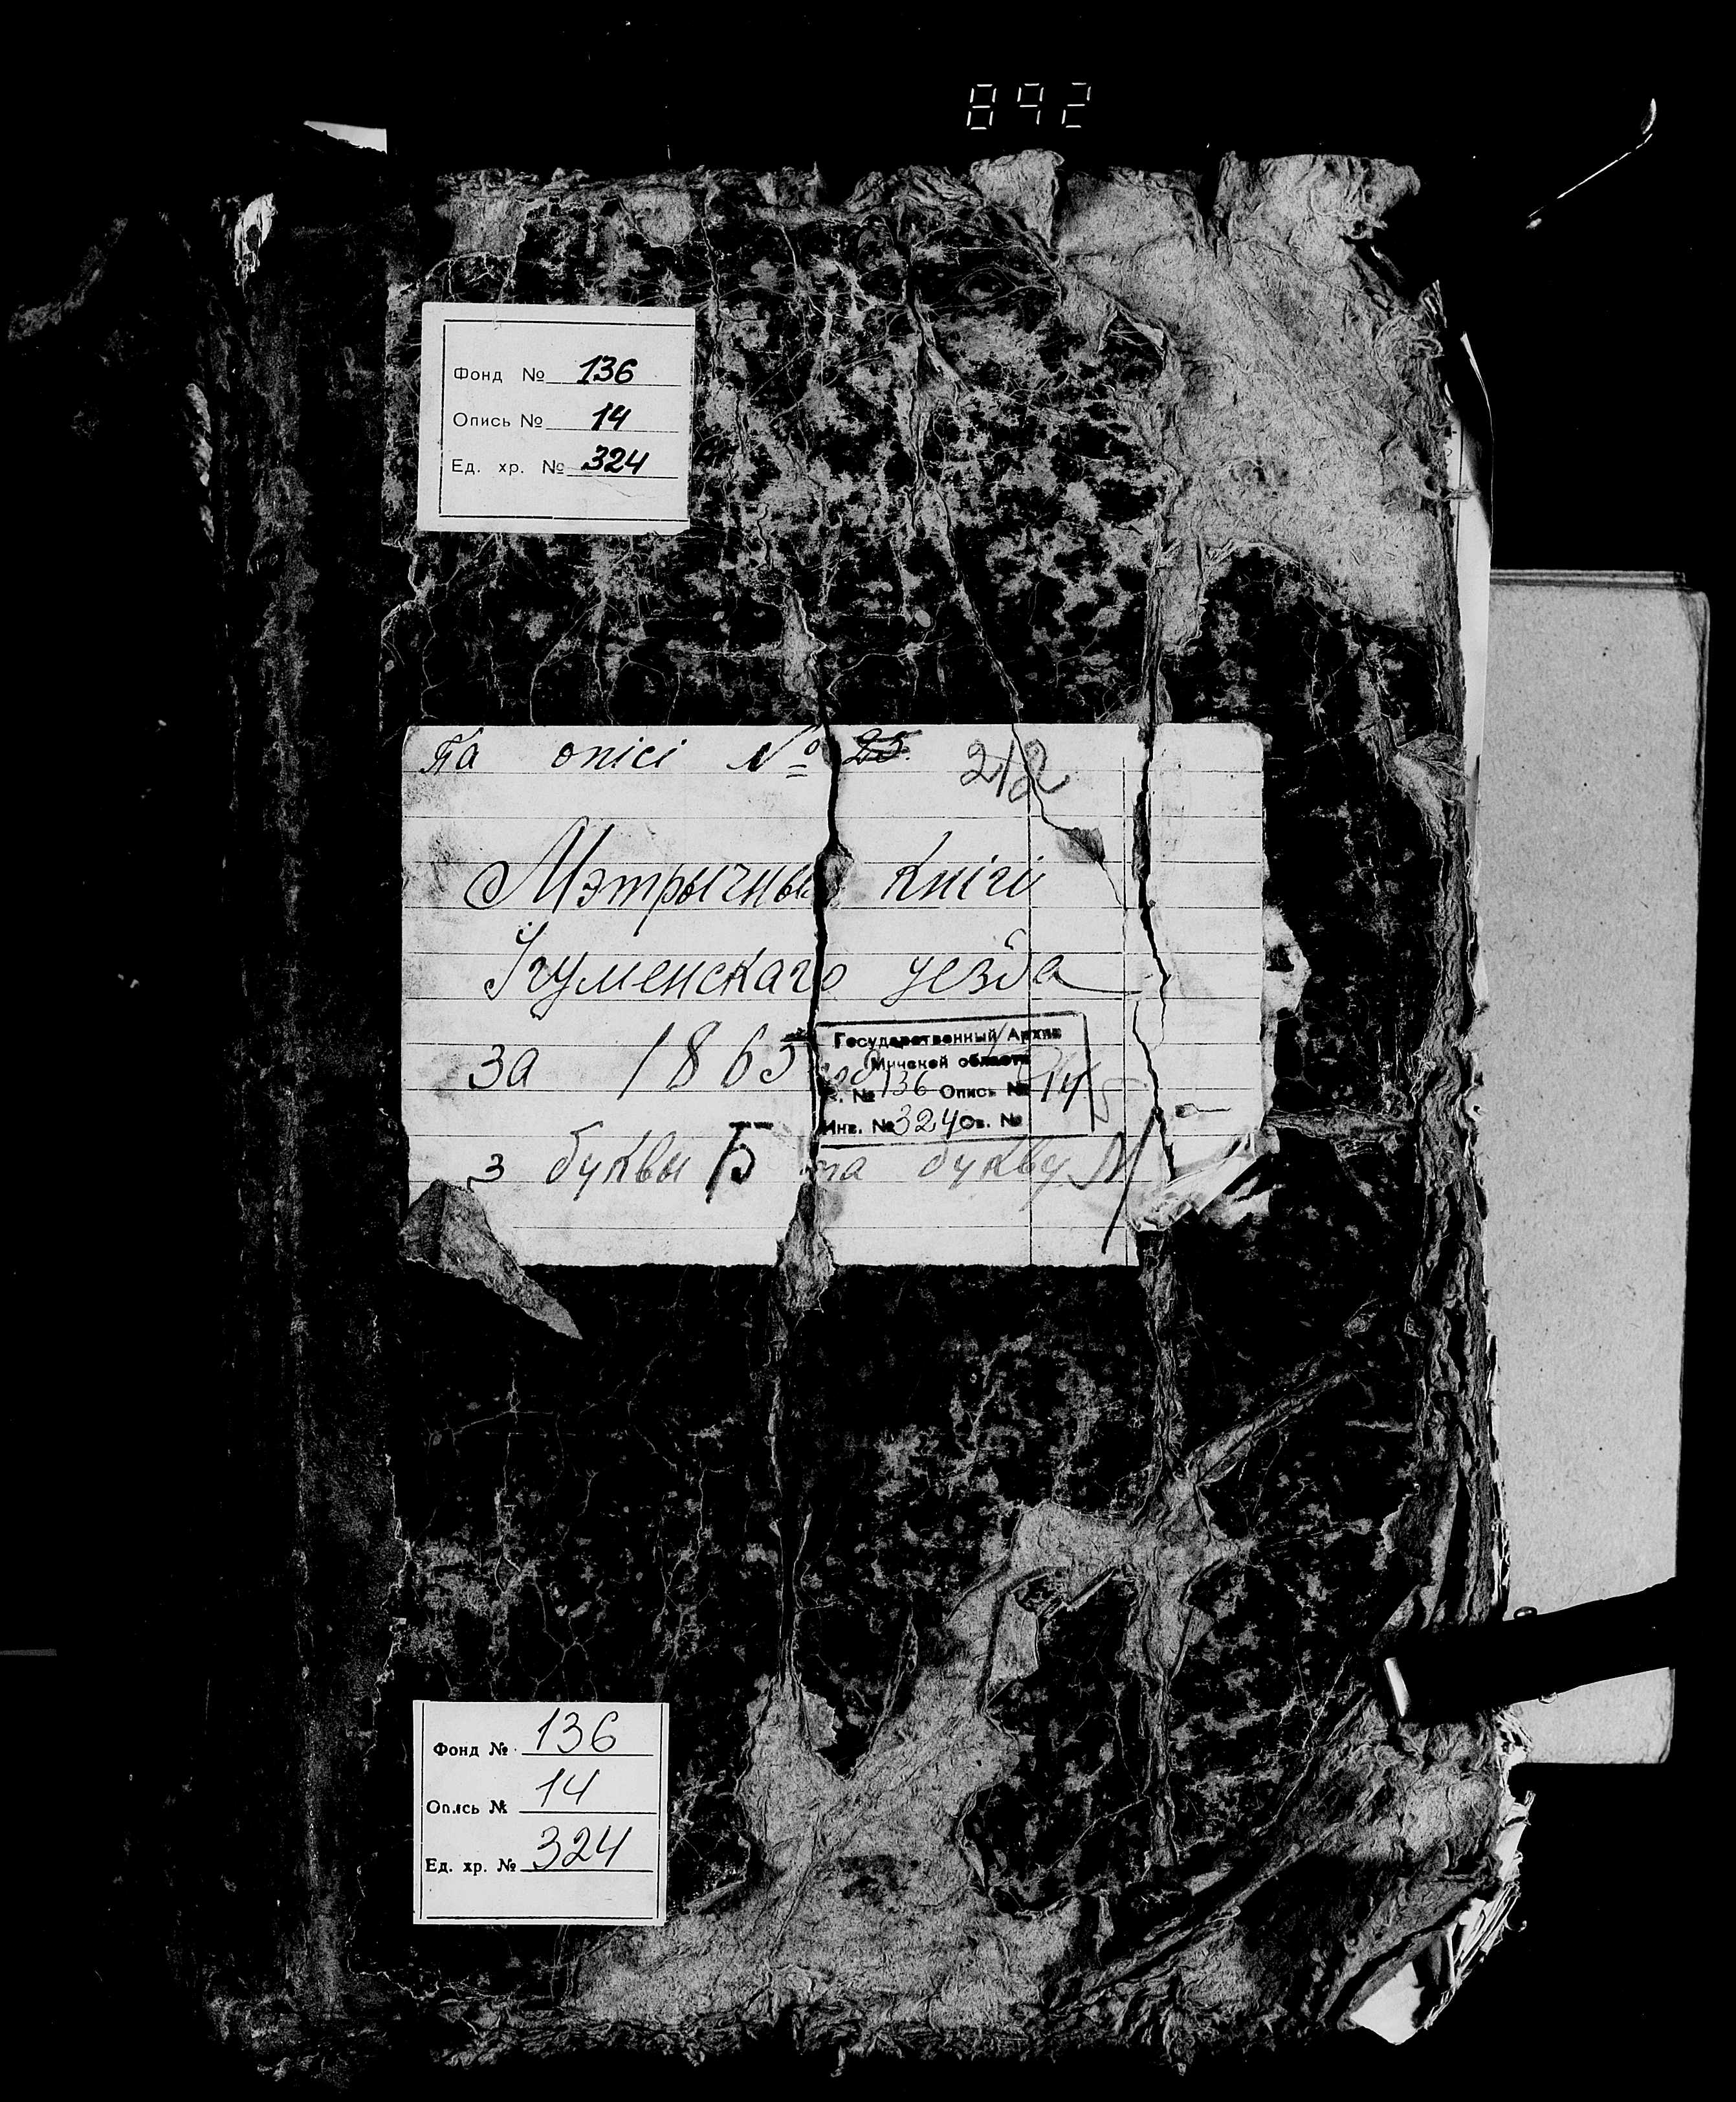 892
Фонд № 136
Опись № 14
Ед. хр. № 324
Па опісі № 25. 212
Мэтрычныя кнігі
Ігуменскаго уезда
за 1865 год
Государственный Архив
Минской области
Ф. № 136 Опись № 14
Инв. № 324 Св. №
з буквы Б па букву М
Фонд № 136
Опись № 14
Ед. хр. № 324